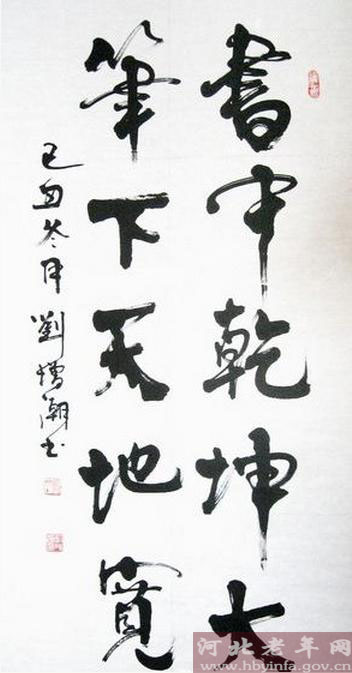 書中乾坤大
筆下天地寬
己丑冬月劉增潮书
河北老年网
www.hbyinfa.gov.cn